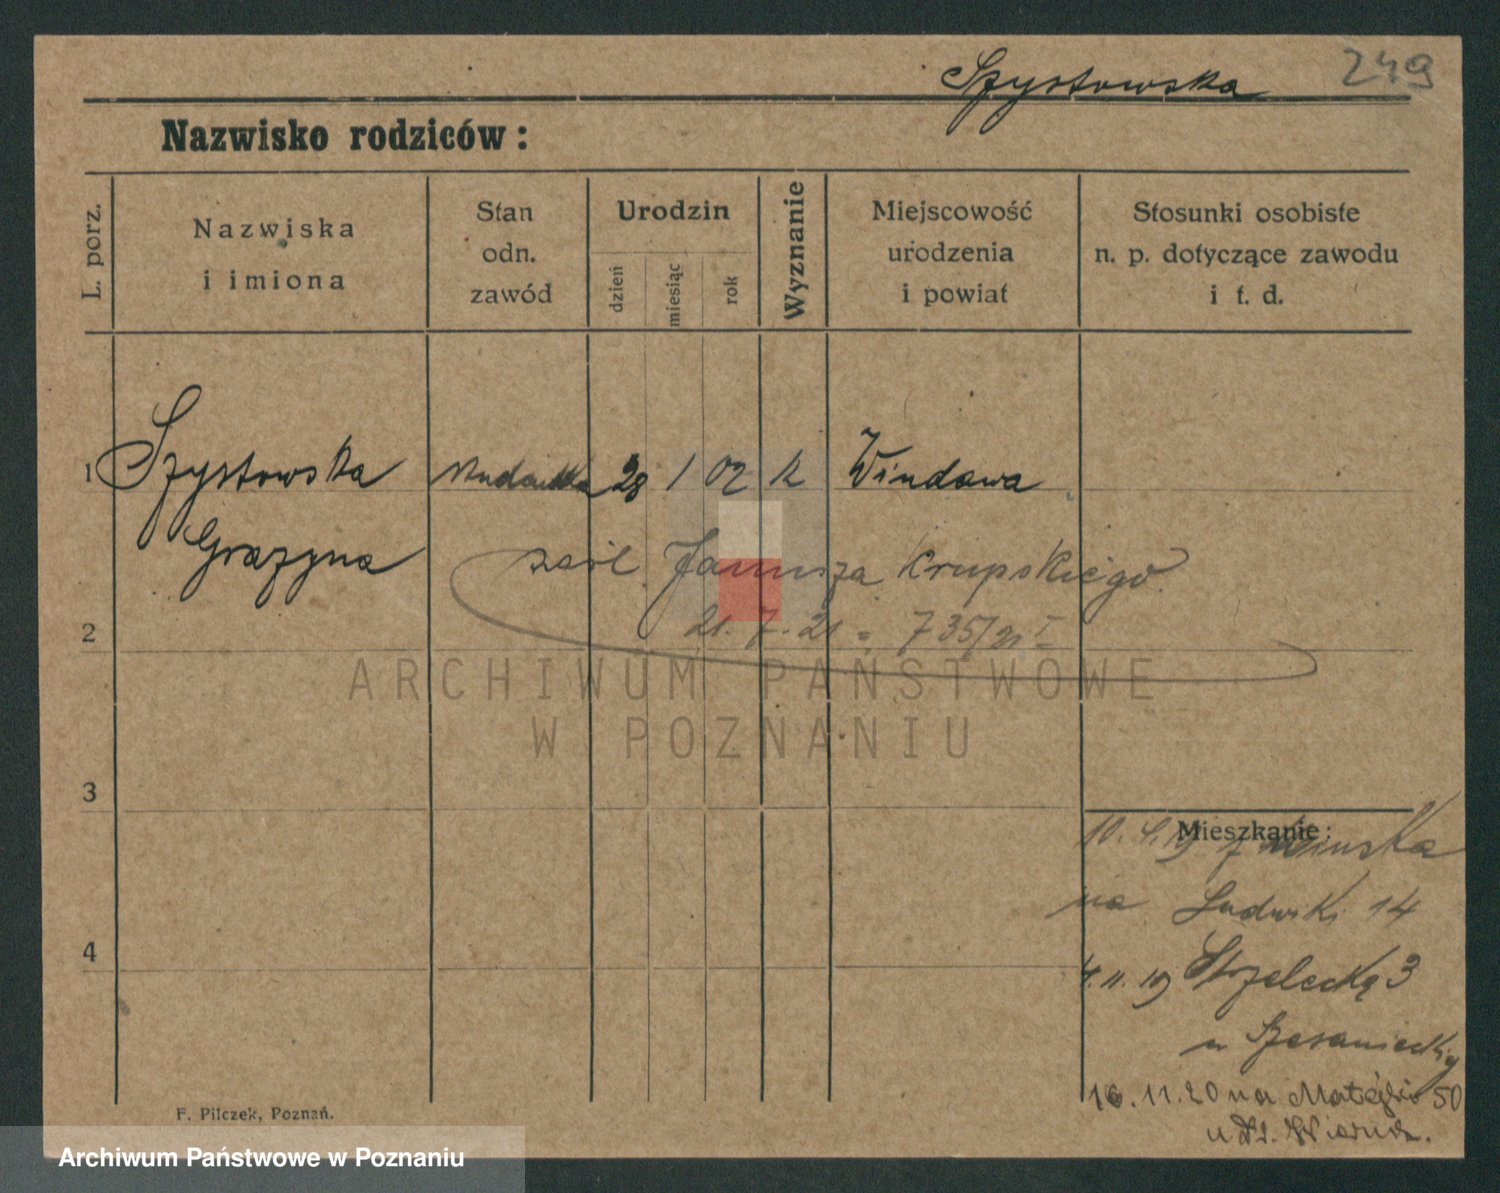 Szystowska 249
Nazwisko rodziców:
L. porz.
Nazwiska
i imiona
Stan
odn.
zawód
Urodzin
dzień
miesiąc
rok
Wyznanie
Miejscowość
urodzenia
i powiat
Stosunki osobiste
n. p. dotyczące zawodu
i t. d.
1 Szystowska studentka 28 1 02 k Windawa
Grażyna
zaśl Janusza Krupskiego
2 21.7.21
ARCHIWUM PAŃSTWOWE
W POZNANIU
3
Mieszkanie:
10.
na Ludwiki 14
4
4.11.19 Strzelecką 3
u Szczanieckiej
16.11.20 na Matejki 50
u
F. Pilczek, Poznań.
Archiwum Państwowe w Poznaniu